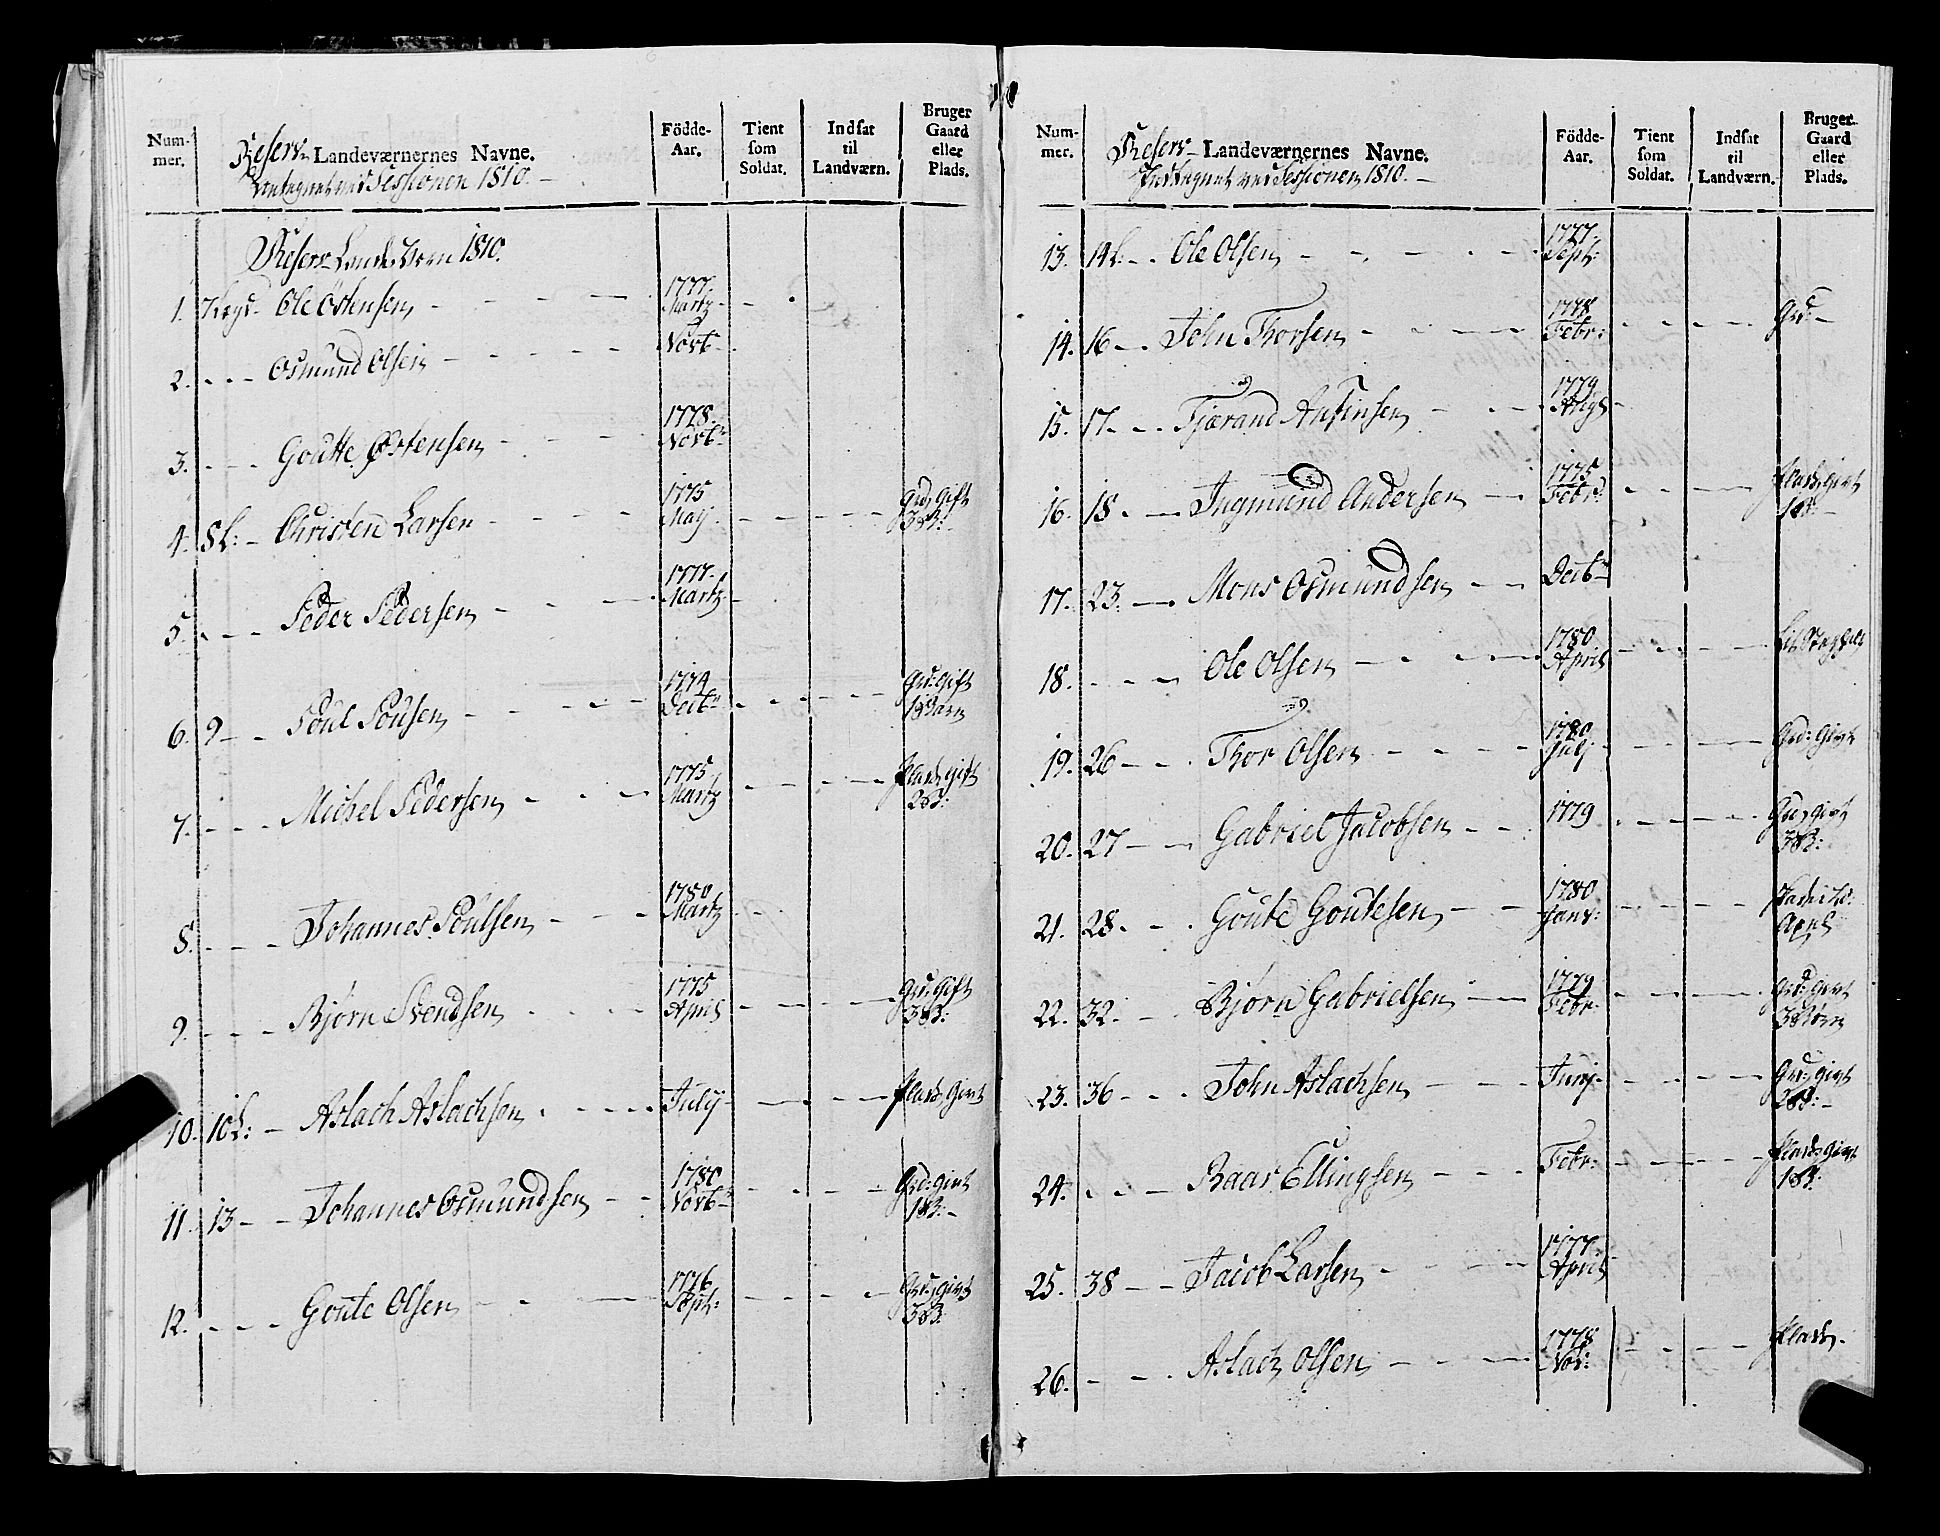 Num-
mer.
Reserv- Landeværnernes Navne.
Sessionen 1810.
Födde-
Aar.
Tient
som
Soldat.
Indsat
til
Landværn.
Bruger
Gaard
eller
Plads.
Reserv Landeværn 1810.
1. 7 Lægd - Ole Østensen 1777. Martz
2. Osmund Olsen Novb
3. Goutte Østensen 1778. Novb
4. 8 L: - Christen Larsen 1775 Maij Grd, Gift 3 B:
5. Peder Pedersen 1777. Martz
6. 9 Poul Pousen 1774 Decb Grd: Gift 1 Barn
7. Michel Pedersen 1775 Martz Plads, Gift 2 B:
8. Johannes Poulsen 1780 Martz
9. Bjørn Svendsen 1775 April Grd, Gift 3 B:
10. 10 L: - Aslach Aslachsen July Plads, Givt
11. 13 Johannes Osmundsen 1780 Novb Grd: Givt 1 B:
12. Goute Olsen 1776 Sept: Grd, Givt 3 B:
Num-
mer.
Reserv- Landeværnernes Navne.
Indtegnet ved Sessionen 1810.
Födde-
Aar.
Tient
som
Soldat.
Indsat
til
Landværn.
Bruger
Gaard
eller
Plads.
13. 14 L: Ole Olsen 1777. Sept:
14. 16 John Thorsen 1778 Febr: Grd:
15. 17 Tjærand Anfinsen 1779 Aug
16. 18. Ingmund Andersen 1775 Febr: Plads, Givt 1 B:
17. 23. Mons Osmundsen Decb
18. Ole Olsen 1780 April
19. 26 Thor Olsen 1780 July Grd: Givt
20. 27 Gabriel Jacobsen 1779 Grd, Givt 3 B:
21. 28. Goute Goutesen 1780 Janv:
22. 32. Bjørn Gabrielsen 1779 Febr. Grd, Givt 3 Børn
23. 36 John Aslachsen Juny Grd, Givt 2 B:
24. Baar Ellingsen Febr: Plads, Givt 1 B:
25. 38 Jacob Larsen 1777. April
26. Aslach Olsen 1778 Nov: Plads.